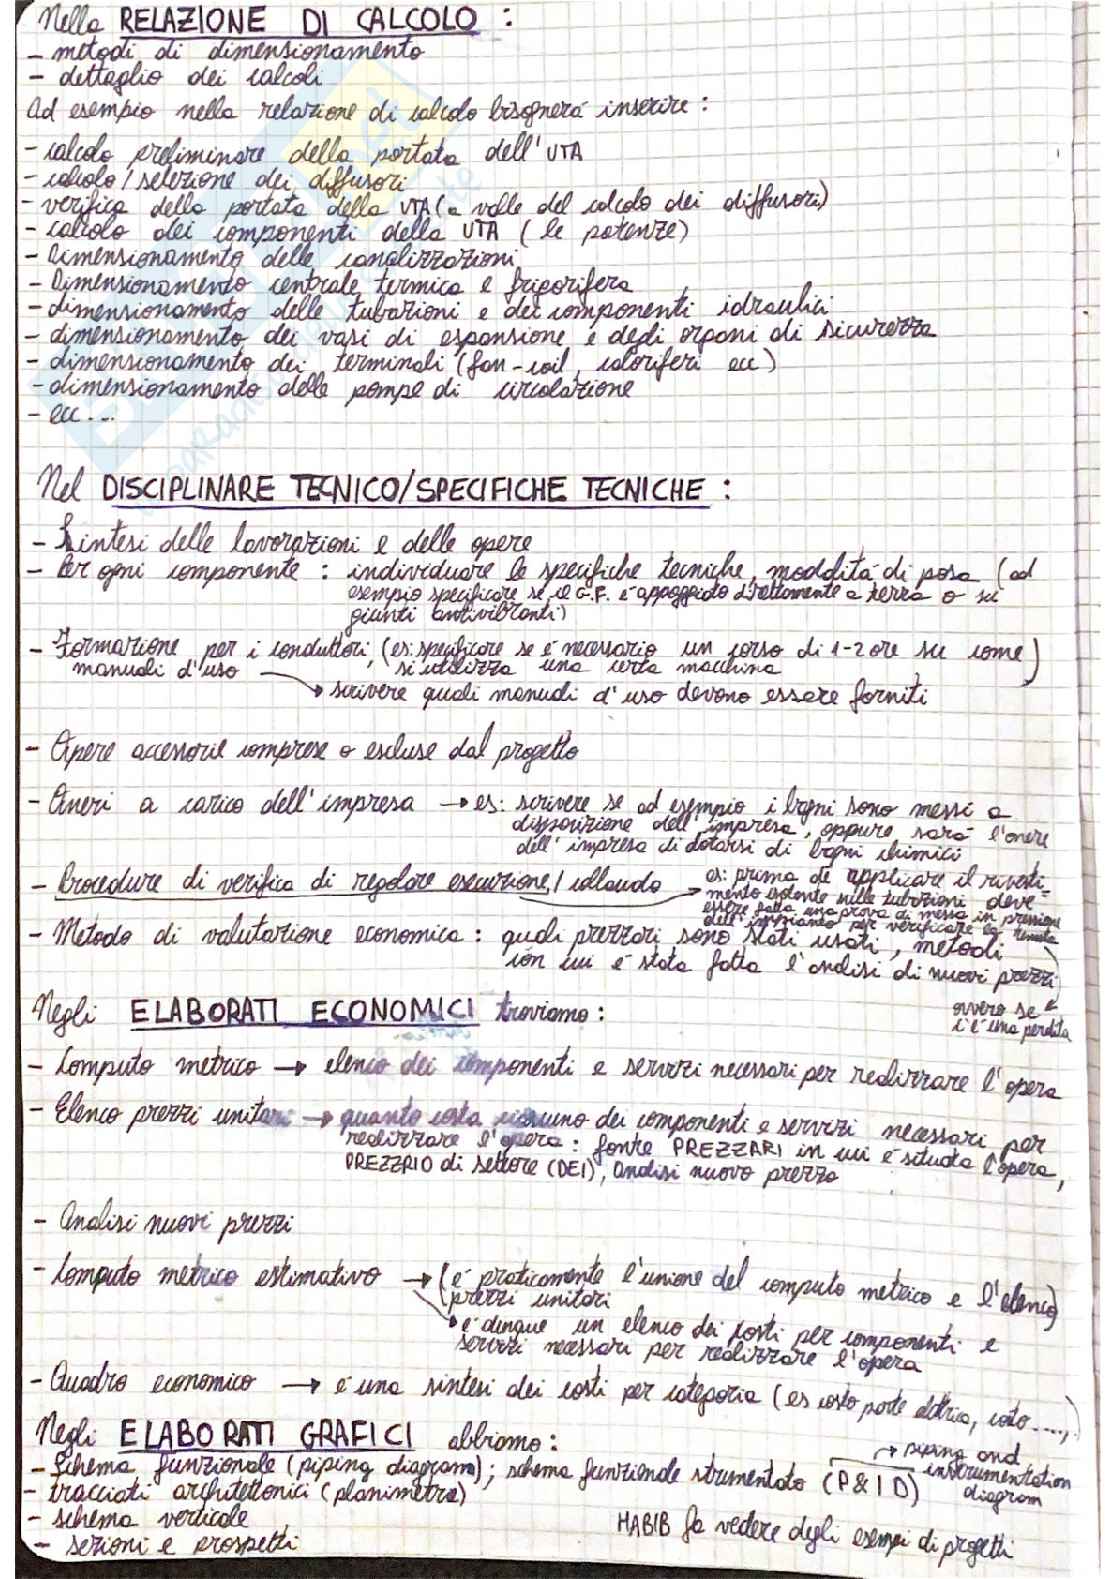 Nella RELAZIONE DI CALCOLO :
- metodi di dimensionamento
- dettaglio dei calcoli
Ad esempio nella relazione di calcolo bisognerá inserire :
- calcolo preliminare della portata dell' UTA
- calcolo / selezione dei diffusori
- verifica della portata della UTA (a valle del calcolo dei diffusori)
- calcolo dei componenti della UTA ( le potenze)
- Dimensionamento delle canalizzazioni
- Dimensionamento centrale termica e frigorifera
- dimensionamento delle tubazioni e dei componenti idraulici
- dimensionamento dei vasi di espansione e degli organi di sicurezza
- dimensionamento dei terminali (fan-coil, caloriferi ecc)
- dimensionamento delle pompe di circolazione
- ecc ...
Nel DISCIPLINARE TECNICO/SPECIFICHE TECNICHE :
- Sintesi delle lavorazioni e delle opere
- Per ogni componente : individuare le specifiche tecniche, modalitá di posa (ad
esempio specificare se il G.F. é appoggiato direttamente a terra o su
giunti antivibranti)
- Formazione per i conduttori, (es: specificare se é necessario un corso di 1-2 ore su come)
manuali d'uso si utilizza una certa macchina
→ scrivere quali manuali d'uso devono essere forniti
- Opere accessorie comprese o escluse dal progetto
- Oneri a carico dell'impresa → es: scrivere se ad esempio i bagni sono messi a
disposizione dell'impresa, oppure sará l'onere
dell'impresa di dotarsi di bagni chimici
- Procedure di verifica di regolare esecuzione / collaudo → es: prima di applicare il rivesti-
mento isolante sulle tubazioni deve
essere fatta una prova di messa in pressione
dell'impianto per verificare la tenuta
- Metodo di valutazione economica : quali prezzari sono stati usati, metodi
con cui é stata fatta l'analisi di nuovi prezzi
ovvero se
c'é una perdita
Negli ELABORATI ECONOMICI troviamo :
- Computo metrico → elenco dei componenti e servizi necessari per realizzare l'opera
- Elenco prezzi unitari → quanto costa ciascuno dei componenti e servizi necessari per
realizzare l'opera : fonte PREZZARI in cui é situata l'opera,
PREZZRIO di settore (DEI), analisi nuovo prezzo
- Analisi nuovi prezzi
- Computo metrico estimativo → (é praticamente l'unione del computo metrico e l'elenco)
prezzi unitari
→ é dunque un elenco dei costi per componenti e
servizi necessari per realizzare l'opera
- Quadro economico → é una sintesi dei costi per categoria (es costo parte elettrica, costo ....,)
Negli ELABORATI GRAFICI abbiamo :
- Schema funzionale (piping diagram); schema funzionale strumentato (P&ID) → piping and
instrumentation
diagram
- tracciati architettonici (planimetra)
- schema verticale
- sezioni e prospetti
HABIB fa vedere degli esempi di progetti